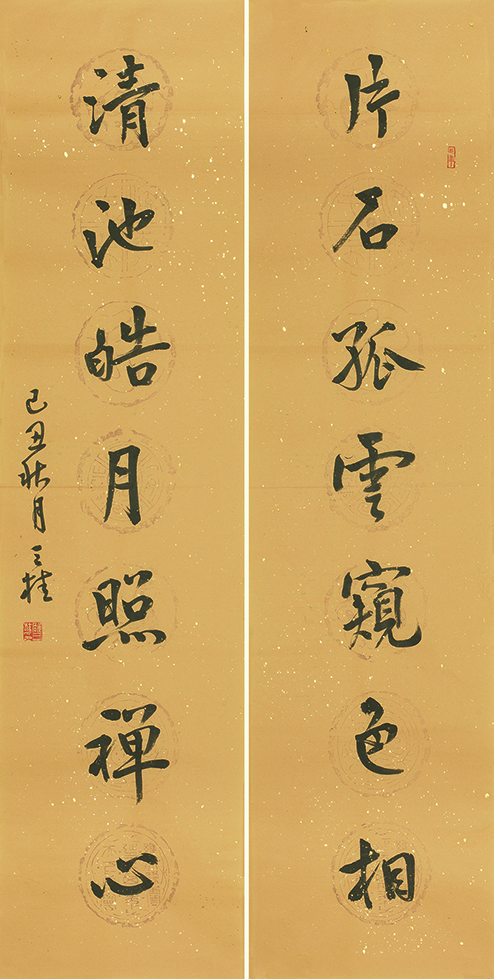 片石孤雲窺色相
清池皓月照禅心
己丑秋月三桂